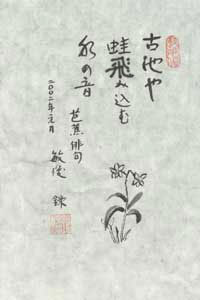 古池や
蛙飛み込む
水の音
芭蕉俳句
敏俊 錄
二〇〇二年元月